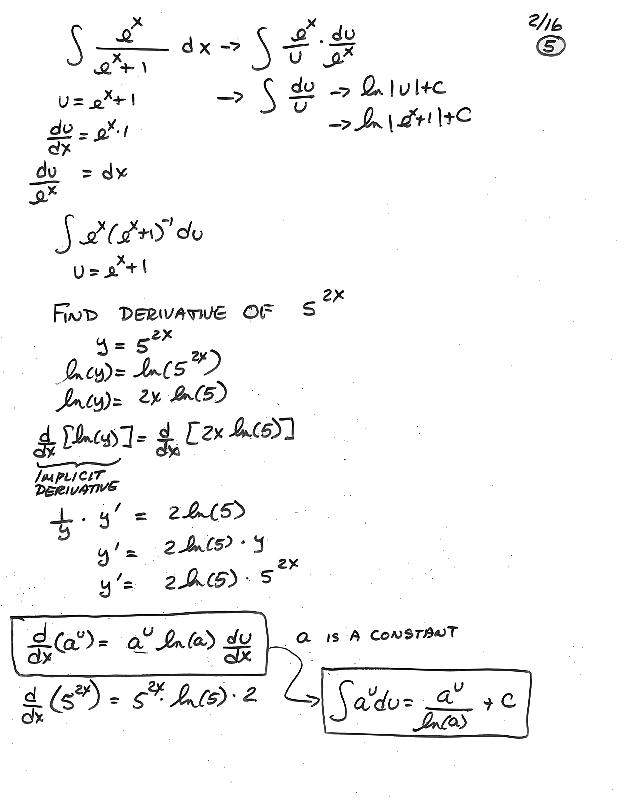 2/16
5
∫ e^x/(e^x+1) dx → ∫ e^x/u · du/e^x
u = e^x+1 → ∫ du/u → ln|u|+c
du/dx = e^x·1 → ln|e^x+1|+C
du/e^x = dx
∫ e^x(e^x+1)^-1 du
u = e^x+1
FIND DERIVATIVE OF 5^2x
y = 5^2x
ln(y) = ln(5^2x)
ln(y) = 2x ln(5)
d/dx [ln(y)] = d/dx [2x ln(5)]
IMPLICIT
DERIVATIVE
1/y · y' = 2 ln(5)
y' = 2 ln(5) · y
y' = 2 ln(5) · 5^2x
d/dx (a^u) = a^u ln(a) du/dx a IS A CONSTANT
d/dx (5^2x) = 5^2x · ln(5) · 2
∫ a^u du = a^u/ln(a) + C